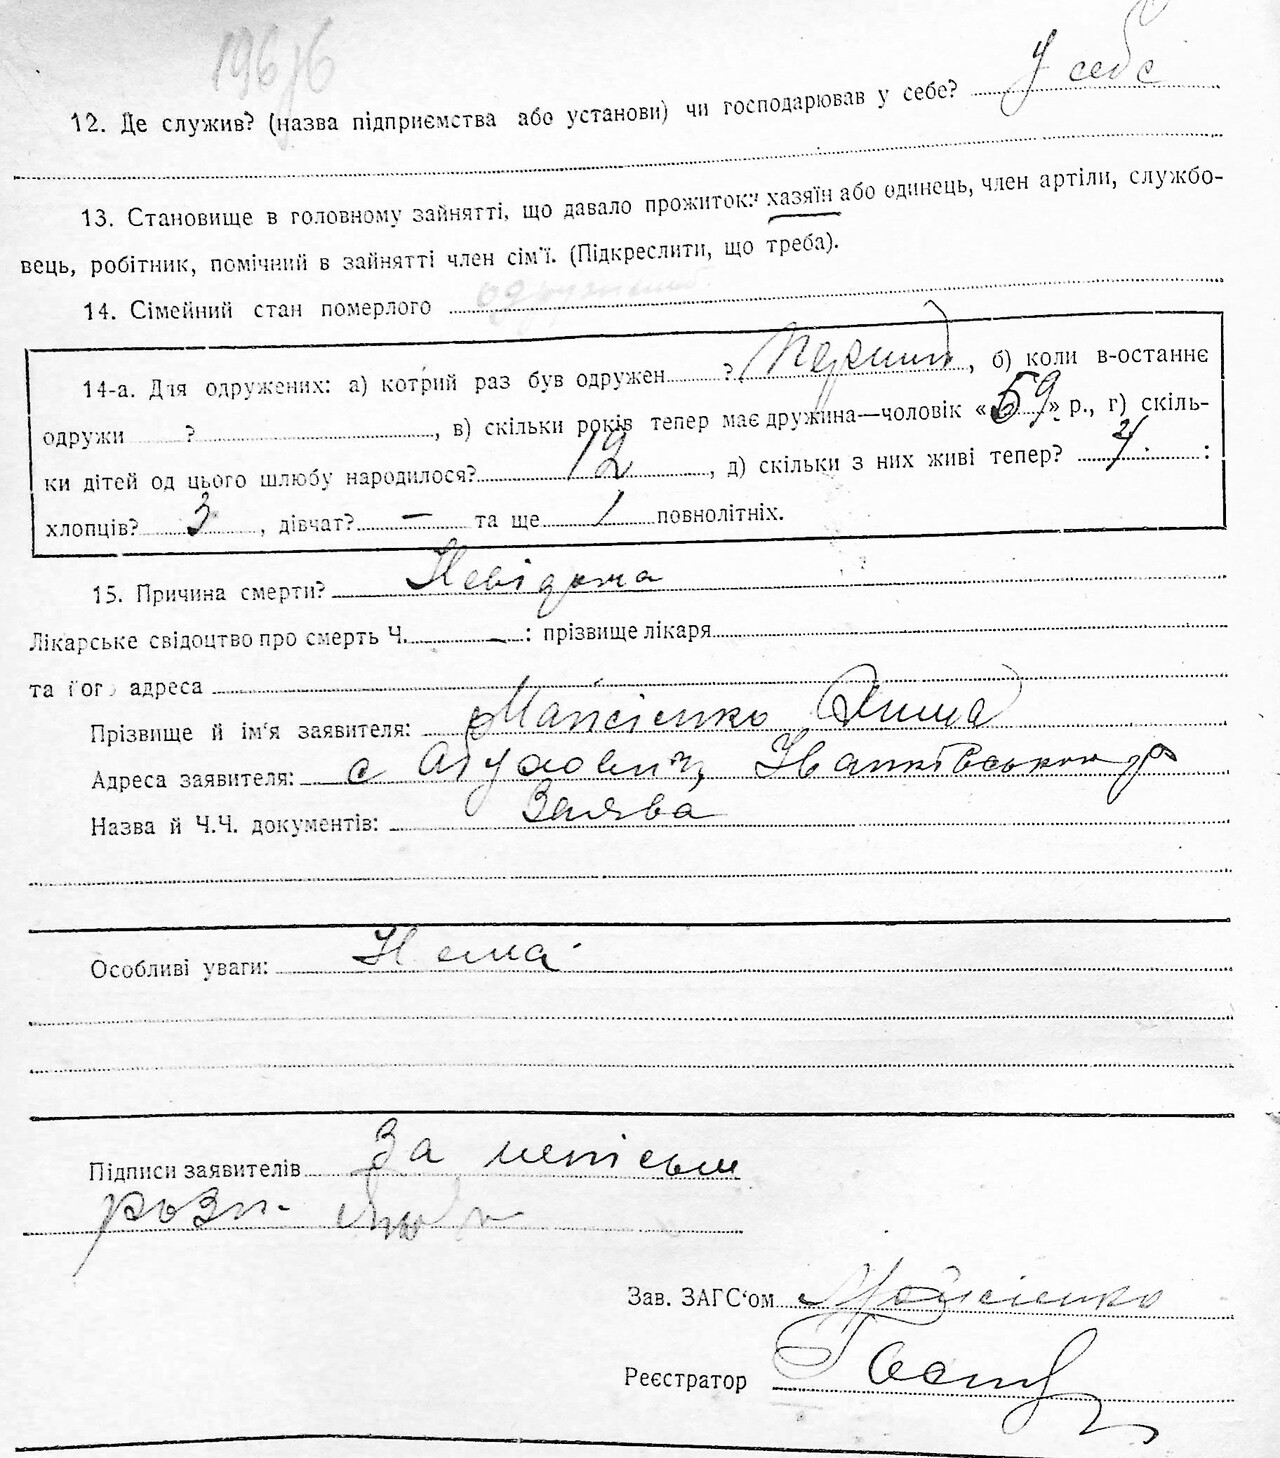 196/6
12. Де служив? (назва підприємства або установи) чи господарював у себе? У себе
13. Становище в головному зайнятті, що давало прожиток: хазяїн або одинець, член артіли, службо-
вець, робітник, помічний в зайнятті член сім'ї. (Підкреслити, що треба).
14. Сімейний стан померлого одружений
14-а. Для одружених: а) котрий раз був одружен ? Перший, б) коли в-останнє
одружи ? , в) скільки років тепер має дружина—чоловік «59» р., г) скіль-
ки дітей од цього шлюбу народилося? 12, д) скільки з них живі тепер? 4 :
хлопців? 3, дівчат? — та ще 1 повнолітніх.
15. Причина смерти? Невідома
Лікарське свідоцтво про смерть Ч. — : прізвище лікаря
та його адреса
Прізвище й ім'я заявителя: Мойсієнко
Адреса заявителя: с Обуховичі, Іванківського р
Назва й Ч.Ч. документів: Заява
Особливі уваги: Нема
Підписи заявителів За неписьм
розп.
Зав. ЗАГС'ом Мойсієнко
Реєстратор